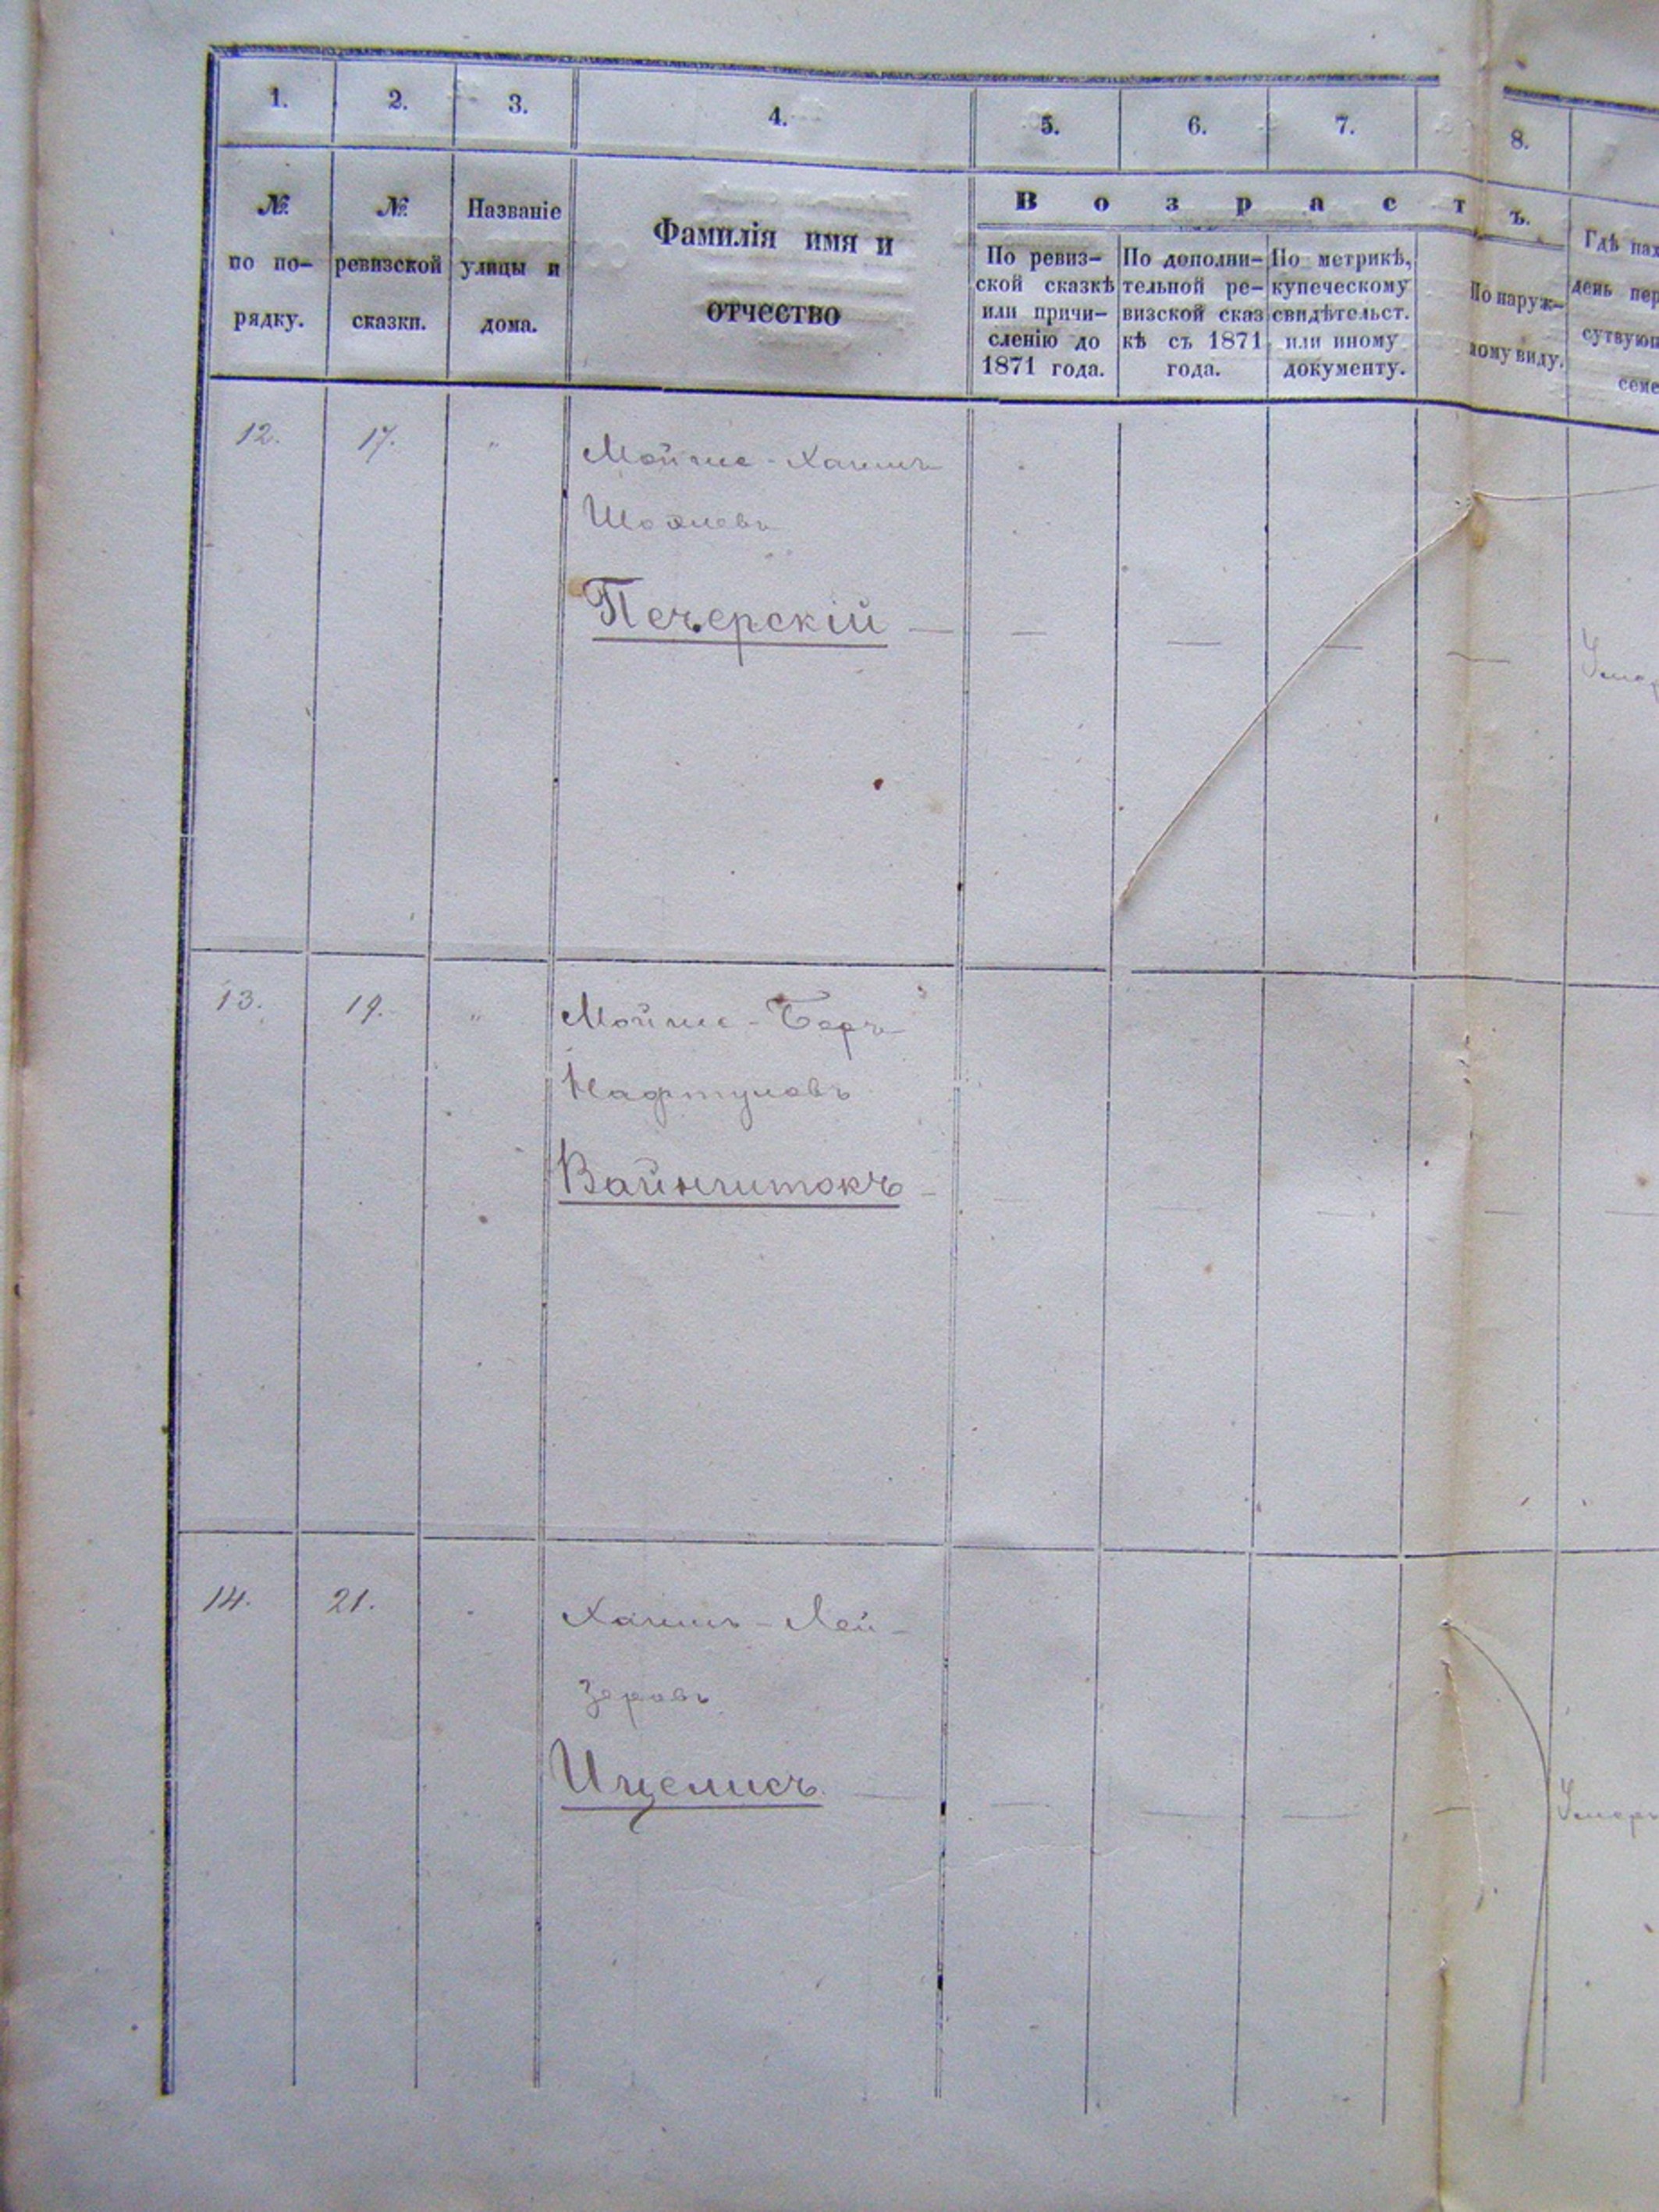 1. 2. 3. 4. 5. 6. 7. 8.
№ по по-рядку.
№ ревизской сказки.
Названіе улицы и дома.
Фамилія имя и
отчество
Возрастъ.
По ревиз-
ской сказкѣ
или причи-
сленію до
1871 года.
По дополни-
тельной ре-
визской сказ
кѣ съ 1871
года.
По метрикѣ,
купеческому
свидѣтельст.
или иному
документу.
По наруж-
ному виду.
Гдѣ нах
день пер
сутвующ
семе
12. 17. " Мойше-Хаимъ
Печерскій — — — — —
Умер
13. 19. " Мойше-Беръ
Нафтуловъ
Вайншток ъ — — — — — —
14. 21. Хаимъ-Лей-
зеровъ
Ицелисъ — — — — —
Умеръ